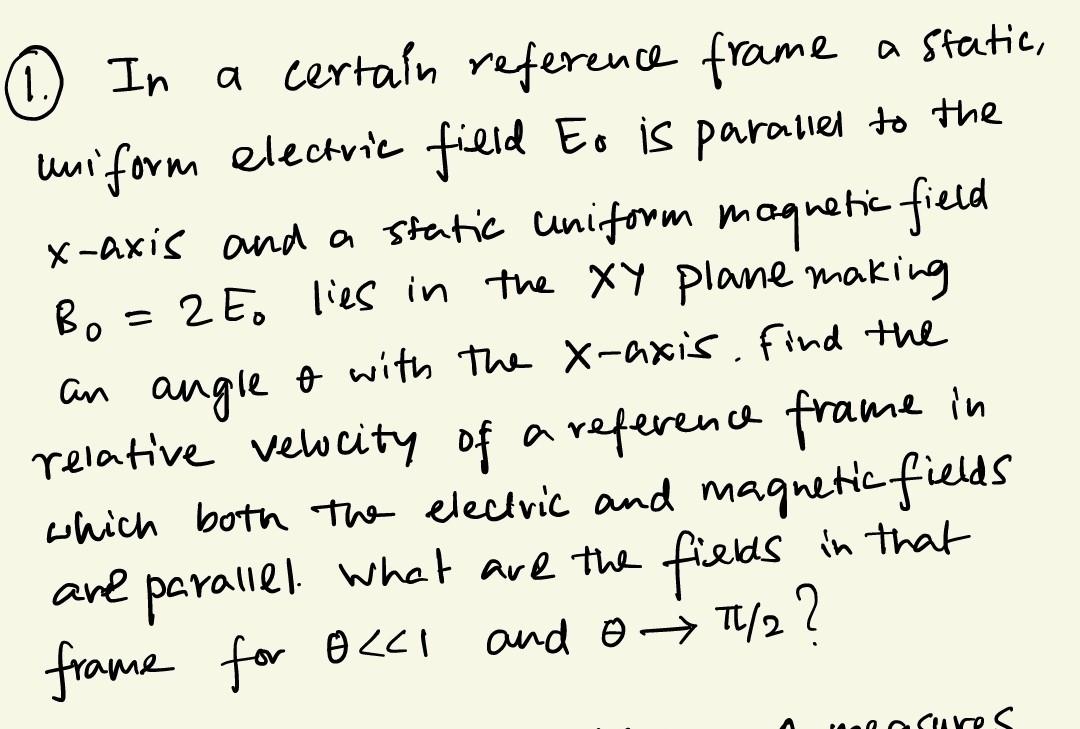 1. In a certain reference frame a static,
uniform electric field E₀ is parallel to the
x-axis and a static uniform magnetic field
B₀ = 2E₀ lies in the XY plane making
an angle θ with the X-axis. Find the
relative velocity of a reference frame in
which both the electric and magnetic fields
are parallel. What are the fields in that
frame for θ<<1 and θ → π/2 ?
measures